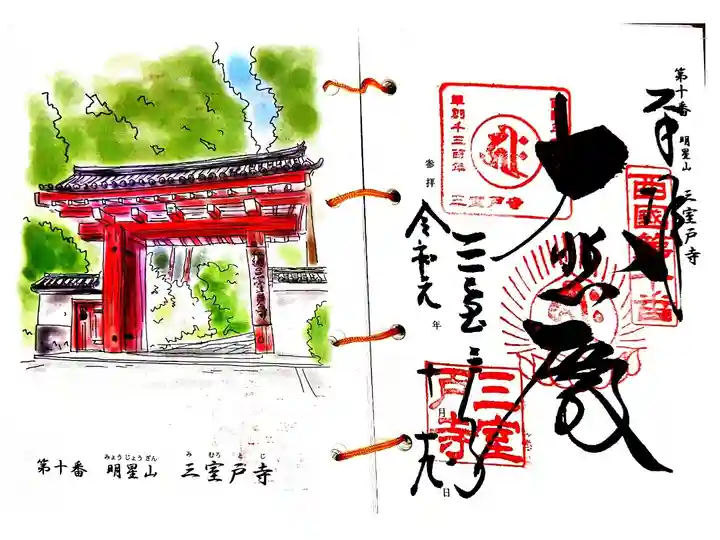 第十番 明星山 三室戸寺
みょうじょうざん
み むろ と じ
三室戸寺
第十番 明星山 三室戸寺
奉拝
西國第十番
大悲殿
草創千三百年
三室戸寺
参拝
令和元年
十月
日
三室戸寺
三室戸寺